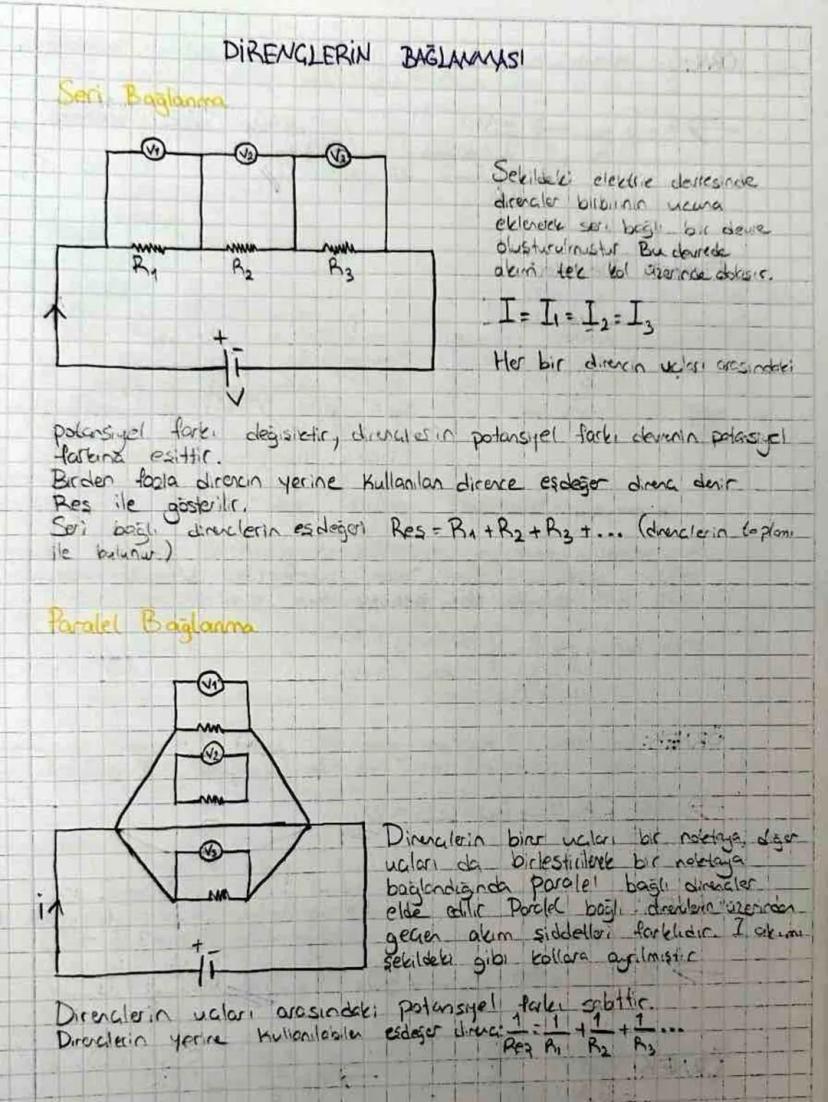 DİRENÇLERİN BAĞLANMASI
Seri Bağlanma
V1 V2 V3
R1 R2 R3
+ -
V
Şekildeki elektrik devresinde
dirençler birbirinin ucuna
eklenerek seri bağlı bir devre
oluşturulmuştur Bu devrede
akım tek kol üzerinde dolaşır.
I = I1 = I2 = I3
Her bir direncin uçları arasındaki
potansiyel farkı değişiktir, dirençlerin potansiyel farkı devrenin potansiyel
farkına eşittir.
Birden fazla direncin yerine kullanılan dirence eşdeğer direnç denir
Reş ile gösterilir.
Seri bağlı dirençlerin eşdeğeri Reş = R1 + R2 + R3 + ... (dirençlerin toplamı
ile bulunur)
Paralel Bağlanma
V1
V2
V3
i
+ -
Dirençlerin birer uçları bir noktaya, diğer
uçları da birleştirilerek bir noktaya
bağlandığında paralel bağlı dirençler
elde edilir Paralel bağlı dirençlerin üzerinden
geçen akım şiddetleri farklıdır. I akımı
şekildeki gibi kollara ayrılmıştır
Dirençlerin uçları arasındaki potansiyel farkı sabittir.
Dirençlerin yerine kullanılabilen eşdeğer direnç: 1/Reş = 1/R1 + 1/R2 + 1/R3 ...